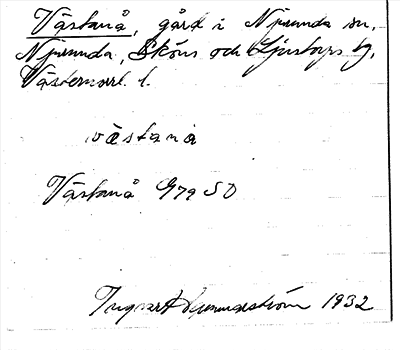 Västanå, gård i Njurunda sn,
Njurunda, Sköns och Ljustorps tg,
Västernorrl. l.
västana
Västanå G79 SO
Ingvar 1932